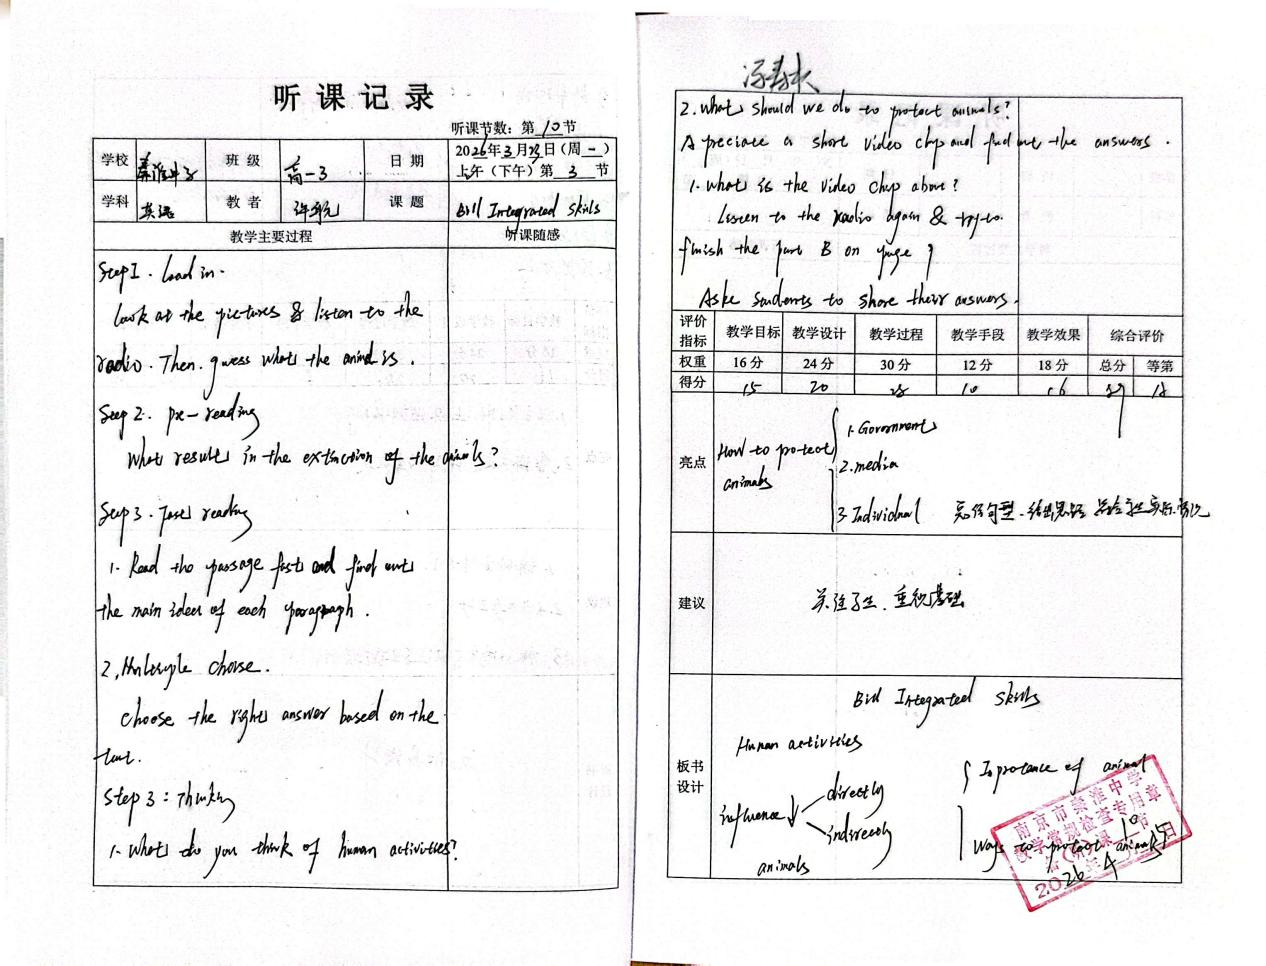 听课记录
听课节数：第 10 节
学校 秦淮中学 班级 高一3 日期 2026年3月23日（周一）
上午（下午）第 3 节
学科 英语 教者 课题 BIII Integrated skills
教学主要过程 听课随感
Step 1. Lead in.
Look at the pictures & listen to the
radio. Then. guess what the animal is.
Step 2. pre-reading
What results in the extinction of the animals?
Step 3. Fast reading
1. Read the passage fast and find out
the main idea of each paragraph.
2, Multiple choose.
choose the right answer based on the
text.
Step 3: Thinking
1. What do you think of human activities?
2. What should we do to protect animals?
Apreciate a short video chip and find out the answers.
1. What is the video chip about?
Listen to the radio again & try to
finish the part B on page 7
Aske students to share their answers.
评价指标 教学目标 教学设计 教学过程 教学手段 教学效果 综合评价
权重 16分 24分 30分 12分 18分 总分 等第
得分 15 20 10 16
亮点
How to protect animals
1. Government
2. media
3. Individual
建议
关注学生、重视基础
板书设计
BIII Integrated skills
Human activities
influence
directly
indirectly
animals
Inportance of animal
Ways to protect animals
南京市秦淮中学
教学常规检查专用章
2026年4月